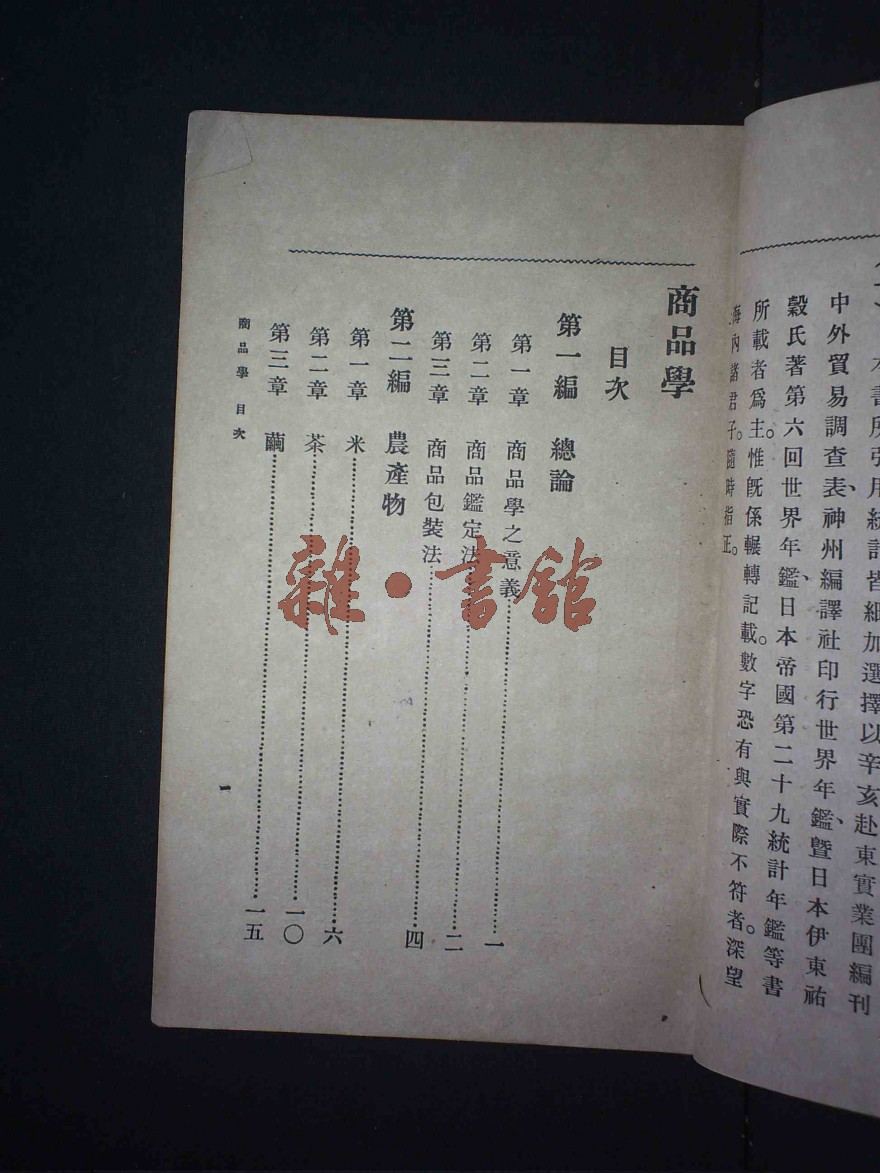 本書所引用統計皆細加選擇以辛亥赴東實業團編刊
中外貿易調查表、神州編譯社印行世界年鑑、暨日本伊東祐
穀氏著第六回世界年鑑、日本帝國第二十九統計年鑑等書
所載者爲主。惟旣係輾轉記載。數字恐有與實際不符者。深望
海內諸君子。隨時指正。
商品學
目次
第一編 總論
第一章 商品學之意義 一
第二章 商品鑑定法 二
第三章 商品包裝法 四
第二編 農產物
第一章 米 六
第二章 茶 一〇
第三章 繭 一五
商品學 目次
一
雜·書館